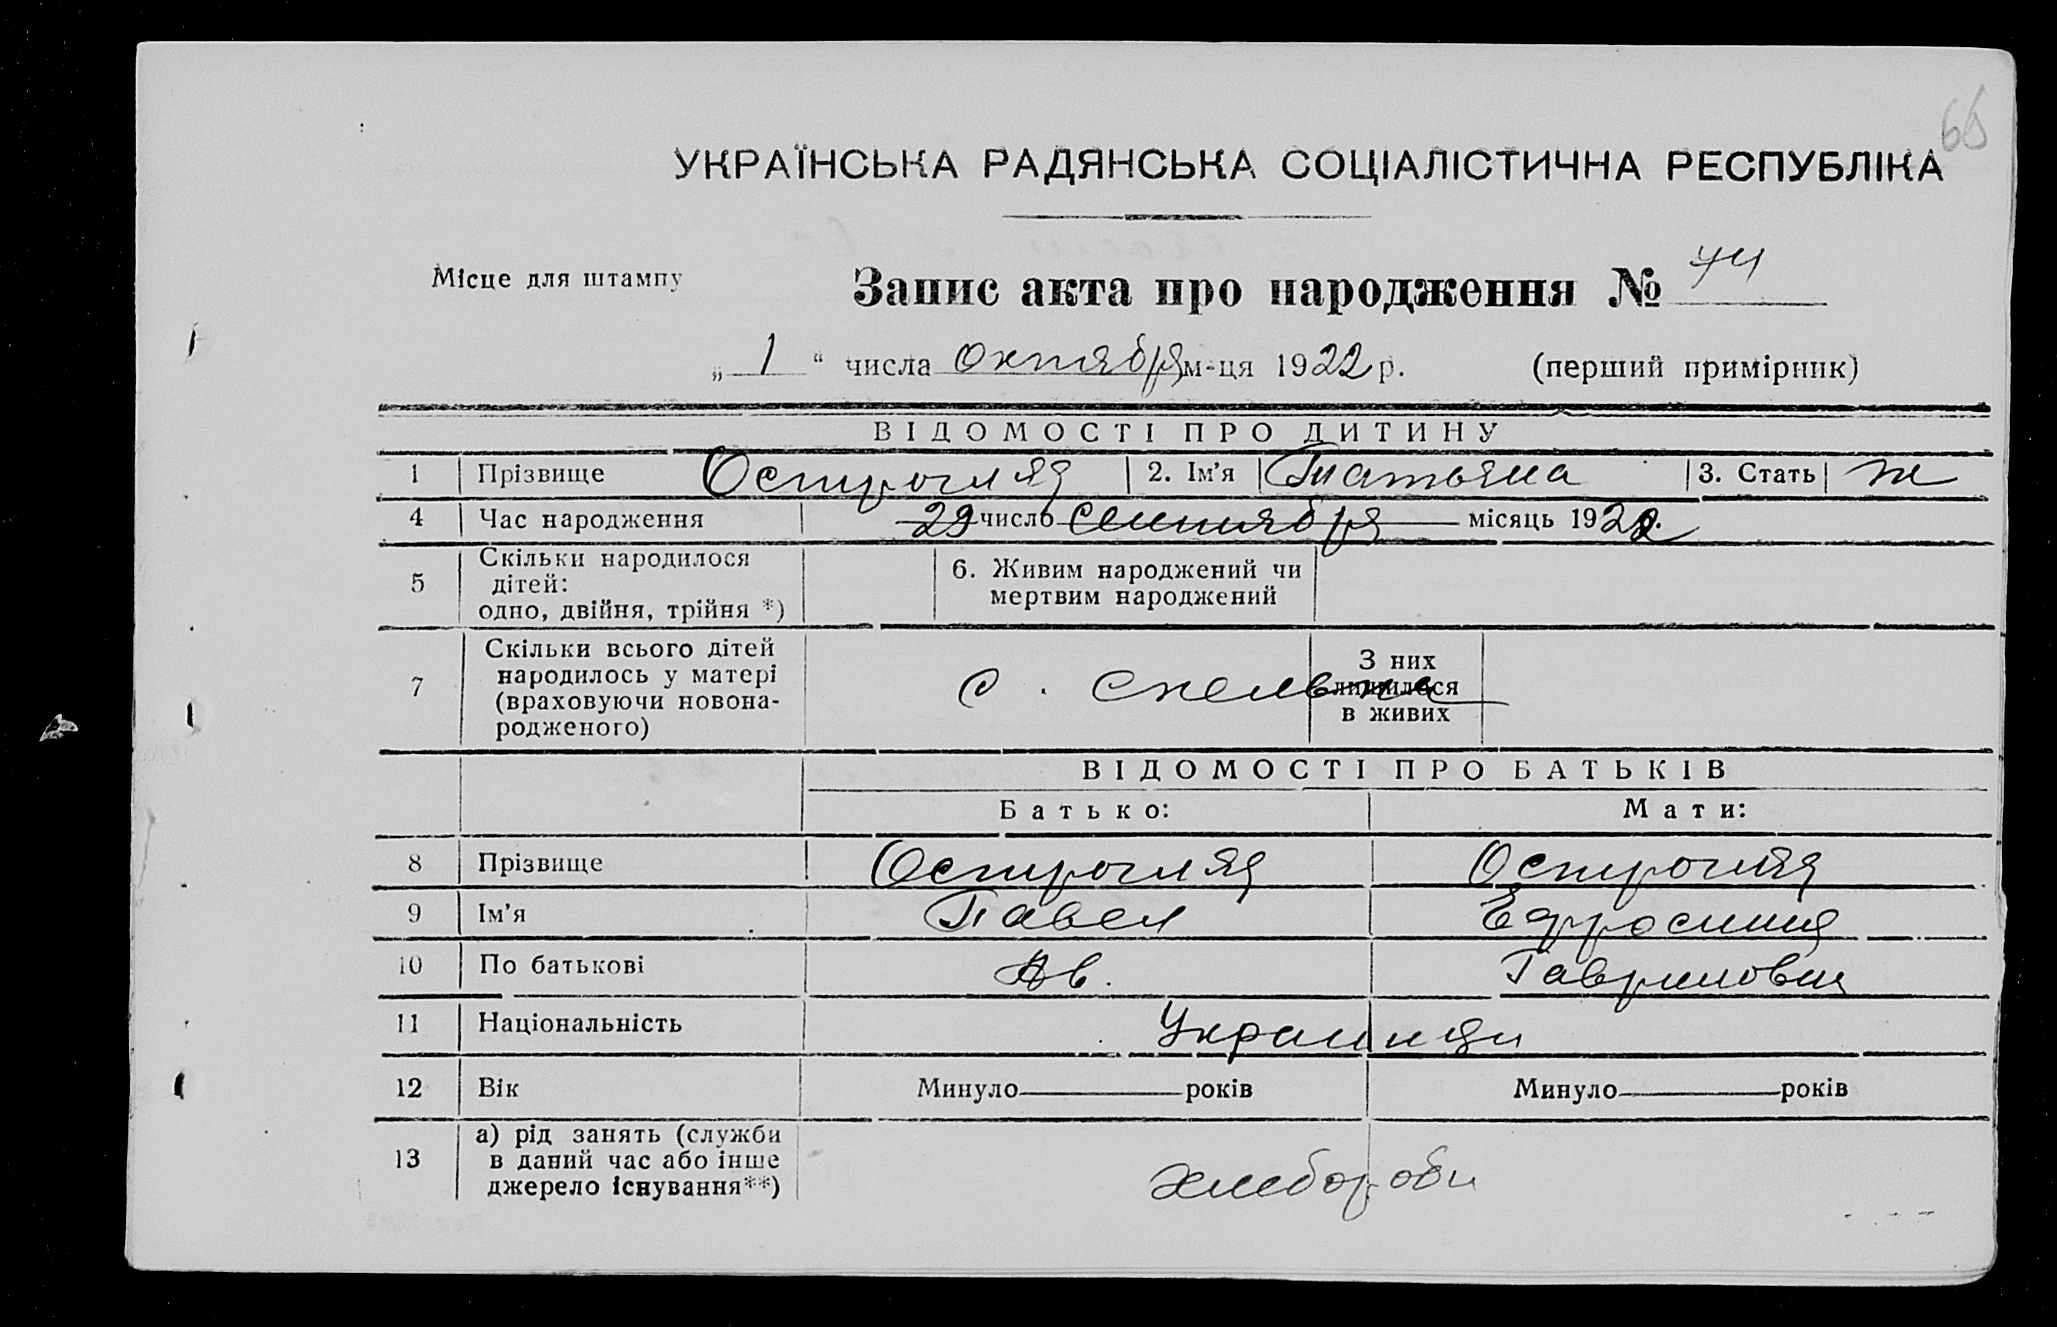 65
УКРАЇНСЬКА РАДЯНСЬКА СОЦІАЛІСТИЧНА РЕСПУБЛІКА
Місце для штампу
Запис акта про народження № 74
„ 1 “ числа октября м-ця 1922 р. (перший примірник)
ВІДОМОСТІ ПРО ДИТИНУ
1 Прізвище Острогляд 2. Ім'я Татьяна 3. Стать ж
4 Час народження 29 число сентября місяць 1922
5 Скільки народилося дітей: одно, двійня, трійня *) 6. Живим народжений чи мертвим народжений
7 Скільки всього дітей народилось у матері (враховуючи новонародженого) с. Скельки З них лишилося в живих
ВІДОМОСТІ ПРО БАТЬКІВ
Батько: Мати:
8 Прізвище Острогляд Острогляд
9 Ім'я Павел Ефросиния
10 По батькові Ав. Гавриловна
11 Національність Украинци
12 Вік Минуло років Минуло років
13 а) рід занять (служби в даний час або інше джерело існування**) хлебороби